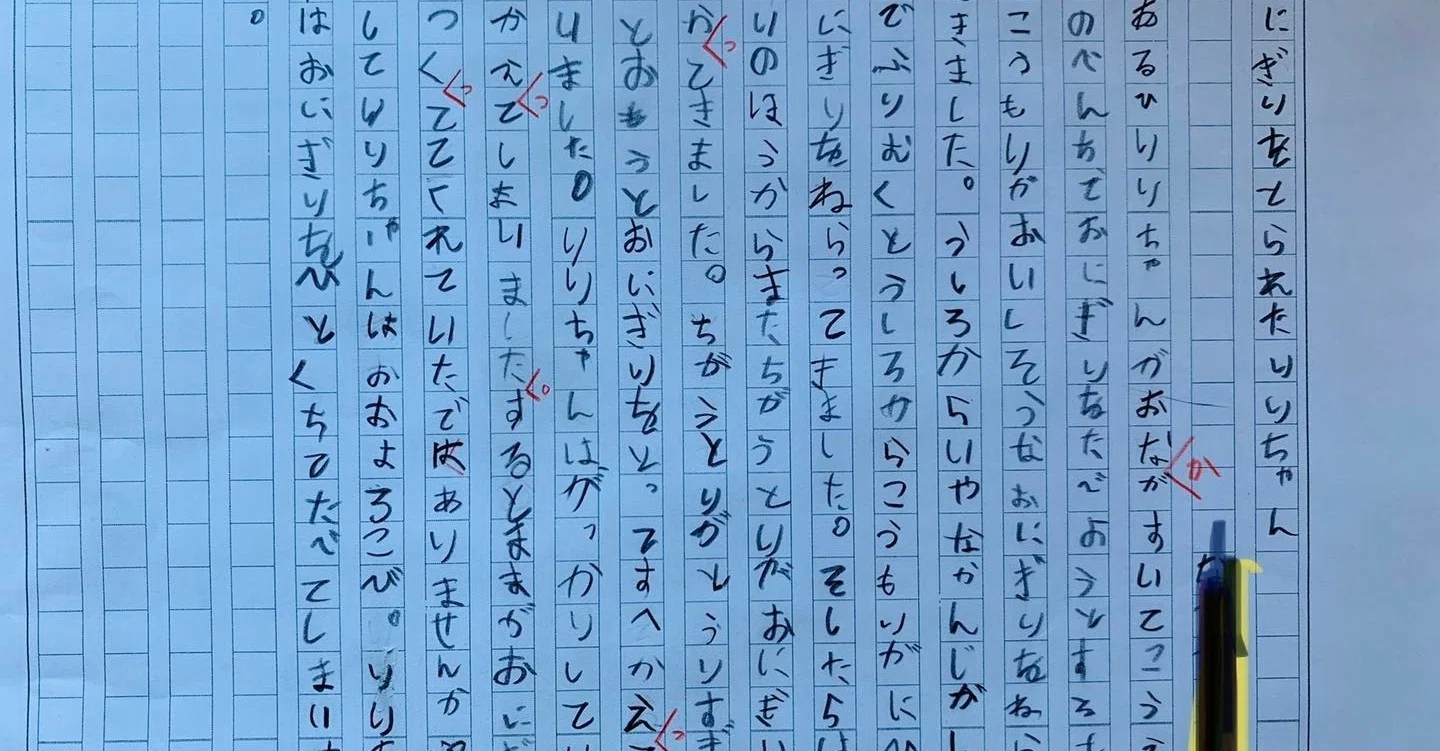 にぎりをとられたりりちゃん
あるひりりちゃんがおながすいてこう
か
のべんちでおにぎりをたべようとする
こうもりがおいしそうなおにぎりをね
きました。うしろからいやなかんじが
でふりむくとうしろからこうもりがに
にぎりをねらってきました。そしたら
りのほうからまたちがうとりがおにぎ
かてきました。ちがうとりがとうりすぎ
っ
とおもうとおにぎりをとってすへかえ
っ
りました。りりちゃんはがっかりして
かえてしまいましたするとままがおに
っ
。
つくててくれていたではありませんか
っ
してりりちゃんはおおよろこび。りり
はおにぎりをひとくちでたべてしまい
。